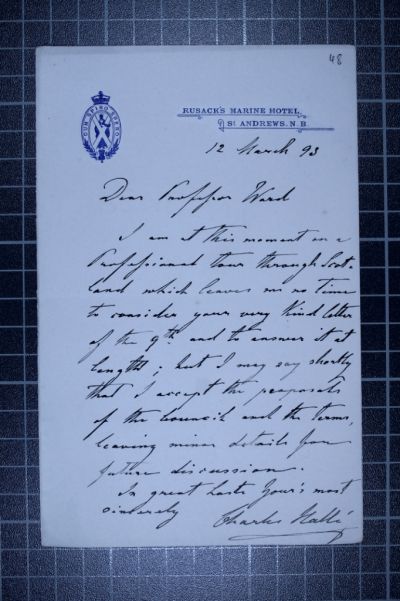 48
DUM SPIRO SPERO
RUSACK'S MARINE HOTEL,
ST ANDREWS. N.B.
12 March 93
Dear Professor Ward
I am at this moment on a
Professional tour through Scot-
land which leaves me no time
to consider your very kind letter
of the 9th and to answer it at
length; but I may say shortly
that I accept the proposals
of the Council and the terms,
leaving minor details for
future discussion.
In great haste Your's most
sincerely
Charles Hallé